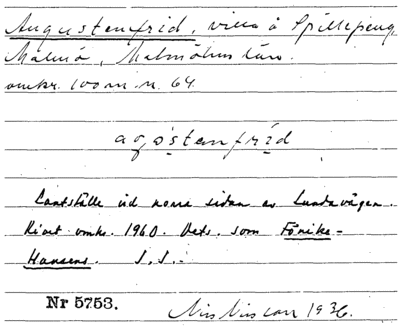 Augustenfrid, villa å Spillepeng,
Malmö, Malmöhus län.
omkr. 100 m. n. 64.
agostenfrid
Lantställe vid norra sidan av Lundavägen.
Rivet omkr. 1960. Dets. som Fönike-
Hansens. S.S.-
Nr 5753.
Nils Nilsson 1936.